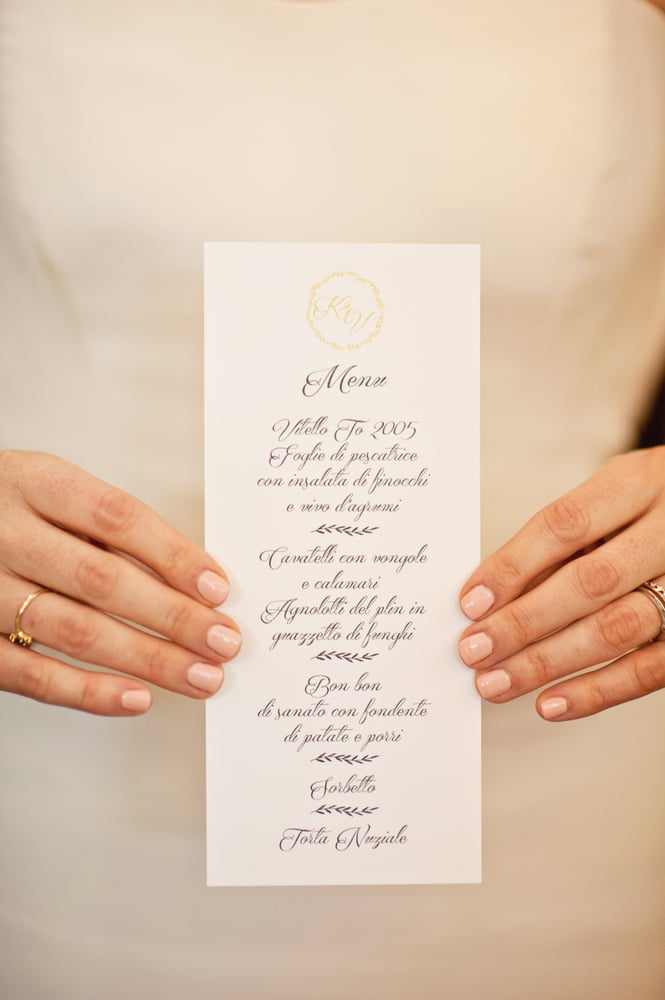 K&V
Menu
Vitello To 2005
Foglie di pescatrice
con insalata di finocchi
e vivo d'agrumi
Cavatelli con vongole
e calamari
Agnolotti del plin in
guazzetto di funghi
Bon bon
di sanato con fondente
di patate e porri
Sorbetto
Torta Nuziale